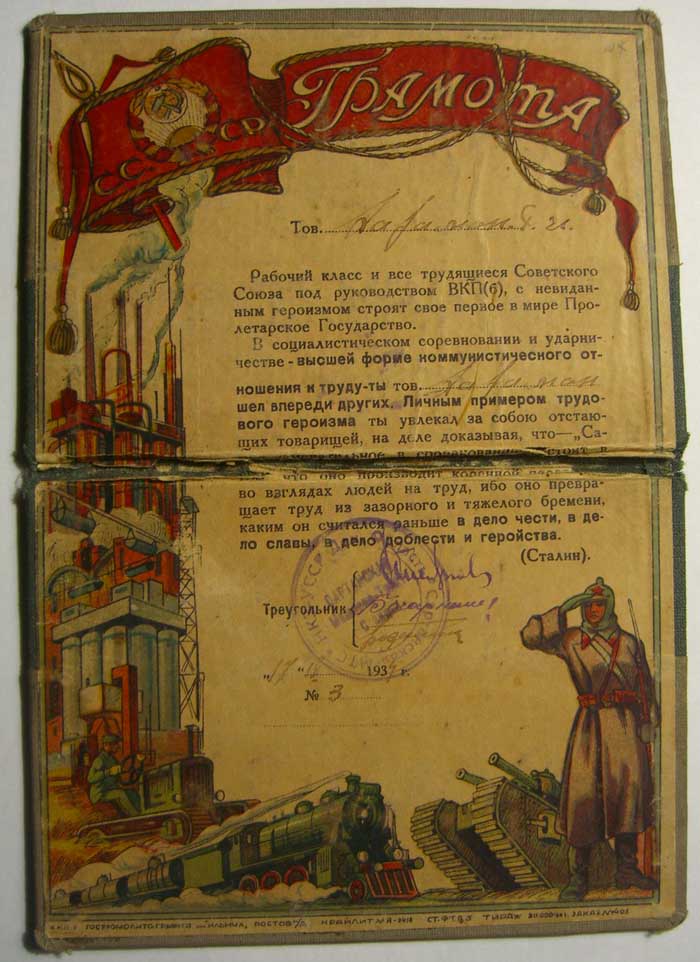 СССР
Грамота
Тов.
Рабочий класс и все трудящиеся Советского
Союза под руководством ВКП(б), с невидан-
ным героизмом строят свое первое в мире Про-
летарское Государство.
В социалистическом соревновании и ударни-
честве - высшей форме коммунистического от-
ношения к труду - ты тов.
шел впереди других. Личным примером трудо-
вого героизма ты увлекал за собою отстаю-
щих товарищей, на деле доказывая, что—„Са-
в соревновании
что оно производит коренной
во взглядах людей на труд, ибо оно превра-
щает труд из зазорного и тяжелого бремени,
каким он считался раньше в дело чести, в де-
ло славы, в дело доблести и геройства.
(Сталин).
Треугольник
"17" 193 г.
№ 3
РОСТОВ СТ. ФТ. Б5 ТИРАЖ